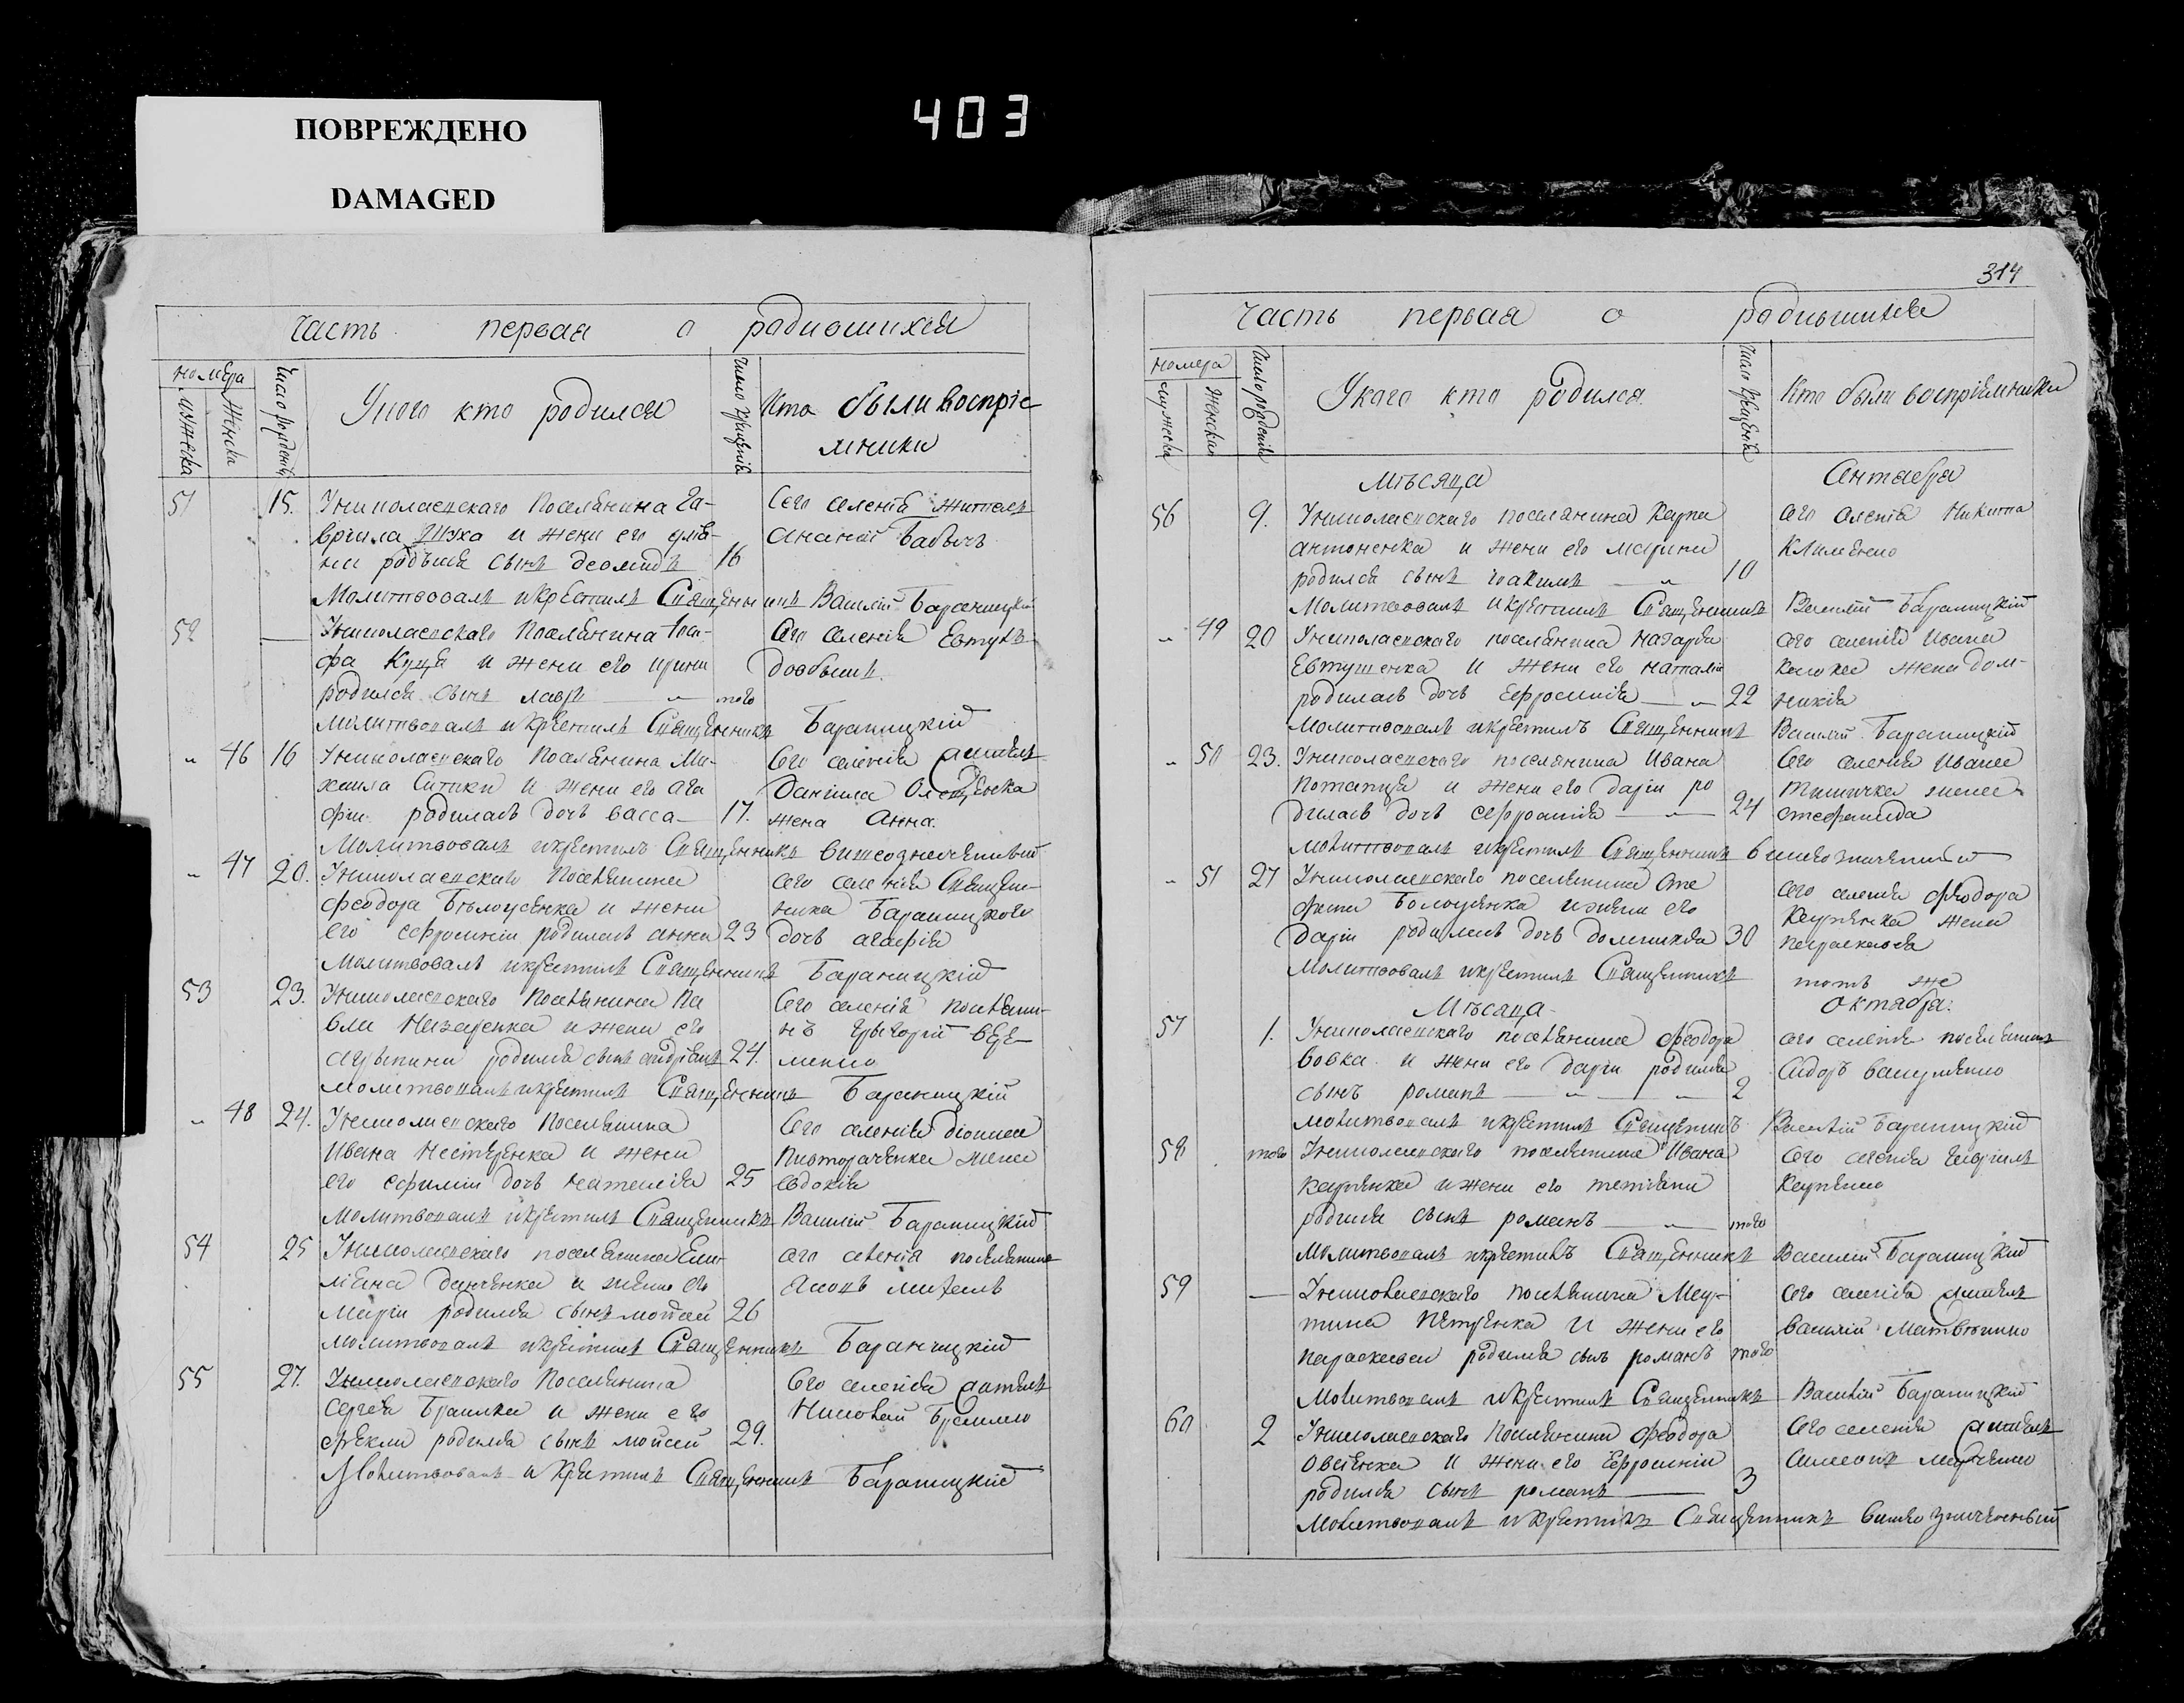 ПОВРЕЖДЕНО
DAMAGED
403
Часть первая о родившихся
номера
мужеска
женска
Число рождения
Уного кто родился
Число крщения
Кто были воспріе-
мники
51 15. Униколаевского поселянина Га-
врiила Шуха и жени его улiя-
ни родився сынъ деомидъ 16
Сего селенія житель
Ананій Бабычъ
Молитвовалъ икрестилъ Священникъ Василій Бараницкій
52 — Униколаевского поселянина Іоси-
фа Куца и жени его ирини
родился сынъ лавръ — " — того
Сего селенія Евтухъ
Довбышъ.
Молитвовалъ икрестилъ Священникъ Бараницкій
" 46 16 Униколаевского поселянина Ми-
хаила Ситики и жени его ага
фіи родилась дочь васса — 17.
Сего селенія жителя
Даніила Олещенка
жена Анна.
Молитвовалъ икрестилъ Священникъ
" 47 20. Униколаевского поселянина
Феодора Бѣлоусенка и жени
его ефросиніи родилась анна 23
Сего селенія Священ-
ника Бараницкого
дочь агафія
Молитвовалъ икрестилъ Священникъ Бараницкій
53 23. Униколаевского поселянина Па
вла Назаренка и жени его
агрыпини родился сынъ андріянъ 24.
Сего селенія поселяни-
нъ Грыгорій
Молитвовалъ икрестилъ Священникъ Бараницкій
" 48 24. Униколаевского поселянина
Ивана Нестеренка и жени
его ефиміи дочь наталія 25
Сего селенія діонисія
Пивтораченка жена
евдокія
Молитвовалъ икрестилъ Священникъ Василій Бараницкій
54 25 Униколаевского поселянина Еми-
ліана Данченка и жени его
Маріи родился сынъ мойсей 26
Сего селенія поселянинъ
Молитвовалъ икрестилъ Священникъ Бараницкій
55 27. Униколаевского поселянина
Сергѣя Браилка и жени его
феклы родился сынъ мойсей 29.
Сего селенія житель
Николай Браилко
Молитвовалъ икрестилъ Священникъ Бараницкій
314
Часть первая о родившихся
номера
мужеска
женская
Число рождения
Укого кто родился.
Число крщения
Кто были воспріемники
Мѣсяца Сентября
56 9. Униколаевского поселянина Карпа
антоненка и жени его марини
родился сынъ іоакимъ — " — 10
Сего селенія Никита
Клименко
Молитвовалъ икрестилъ Священникъ Василій Бараницкій
" 49 20 Униколаевского поселянина Назарія
Евтушенка и жени его наталіи
родилась дочь Ефросинія — " — 22
Сего селенія Ивана
жена дом-
никія
Молитвовалъ икрестилъ Священникъ Василій Бараницкій
" 50 23. Униколаевского поселянина Ивана
Потапца и жени его Даріи ро
дилась дочь ефросинія — " — 24
Сего селенія Ивана
жена
стефанида
Молитвовалъ икрестилъ Священникъ
" 51 27 Униколаевского поселянина Сте
фана Бѣлоусенка ижени его
Даріи родилась дочь домникія 30
Сего селенія Феодора
Карпенка жена
параскевія
Молитвовалъ икрестилъ Священникъ тотъ же
Мѣсяца Октября.
57 1. Униколаевского поселянина Феодора
Вовка и жени его Даріи родился
сынъ романъ — " — " — 2
Сего селенія поселянинъ
Сидоръ Вакуленко
Молитвовалъ икрестилъ Священникъ Василій Бараницкій
58 того Униколаевского поселянина Ивана
Карпенка ижени его тетіяни
родился сынъ романъ — " — того
Сего селенія Гавріилъ
Карпенко
Молитвовалъ икрестилъ Священникъ Василій Бараницкій
59 — Униколаевского поселянина Мар-
тина Петренка и жени его
параскевіи родился сынъ романъ того
Сего селенія житель
Василій Матвіенко
Молитвовалъ икрестилъ Священникъ Василій Бараницкій
60 2 Униколаевского поселянина Феодора
Овсіенка и жени его Ефросиніи
родился сынъ романъ — 3
Сего селенія житель
Симеонъ Марченко
Молитвовалъ икрестилъ Священникъ вишеозначенный